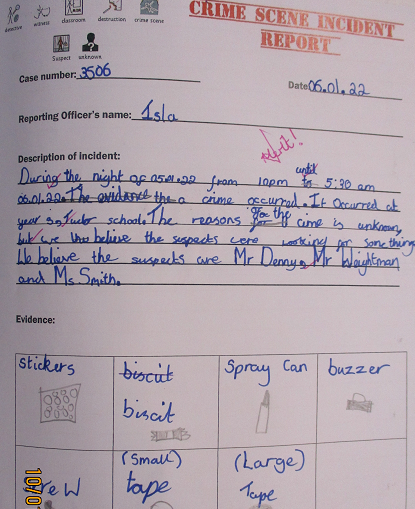 detective
witness
classroom
destruction
crime scene
Suspect
unknown
CRIME SCENE INCIDENT
REPORT
Case number: 3506
Date 06.01.22
Reporting Officer's name: Isla
Description of incident:
until
During the night of 05.01.22 from 10pm to 5:30 am
06.01.22. The evidance the a crime occurred. It occurred at
year 3, Tudor school. The reasons for the cime is unknown,
but we the believe the suspects were looking for some things
We believe the suspects are Mr Denny, Mr Weightman
and Ms Smith.
Evidence:
Stickers
biscuit
biscit
Spray Can
buzzer
(Small)
tape
(Large)
Tape